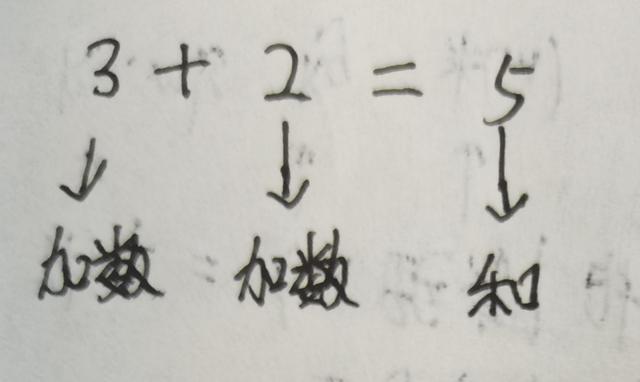 3 + 2 = 5
↓ ↓ ↓
加数 加数 和